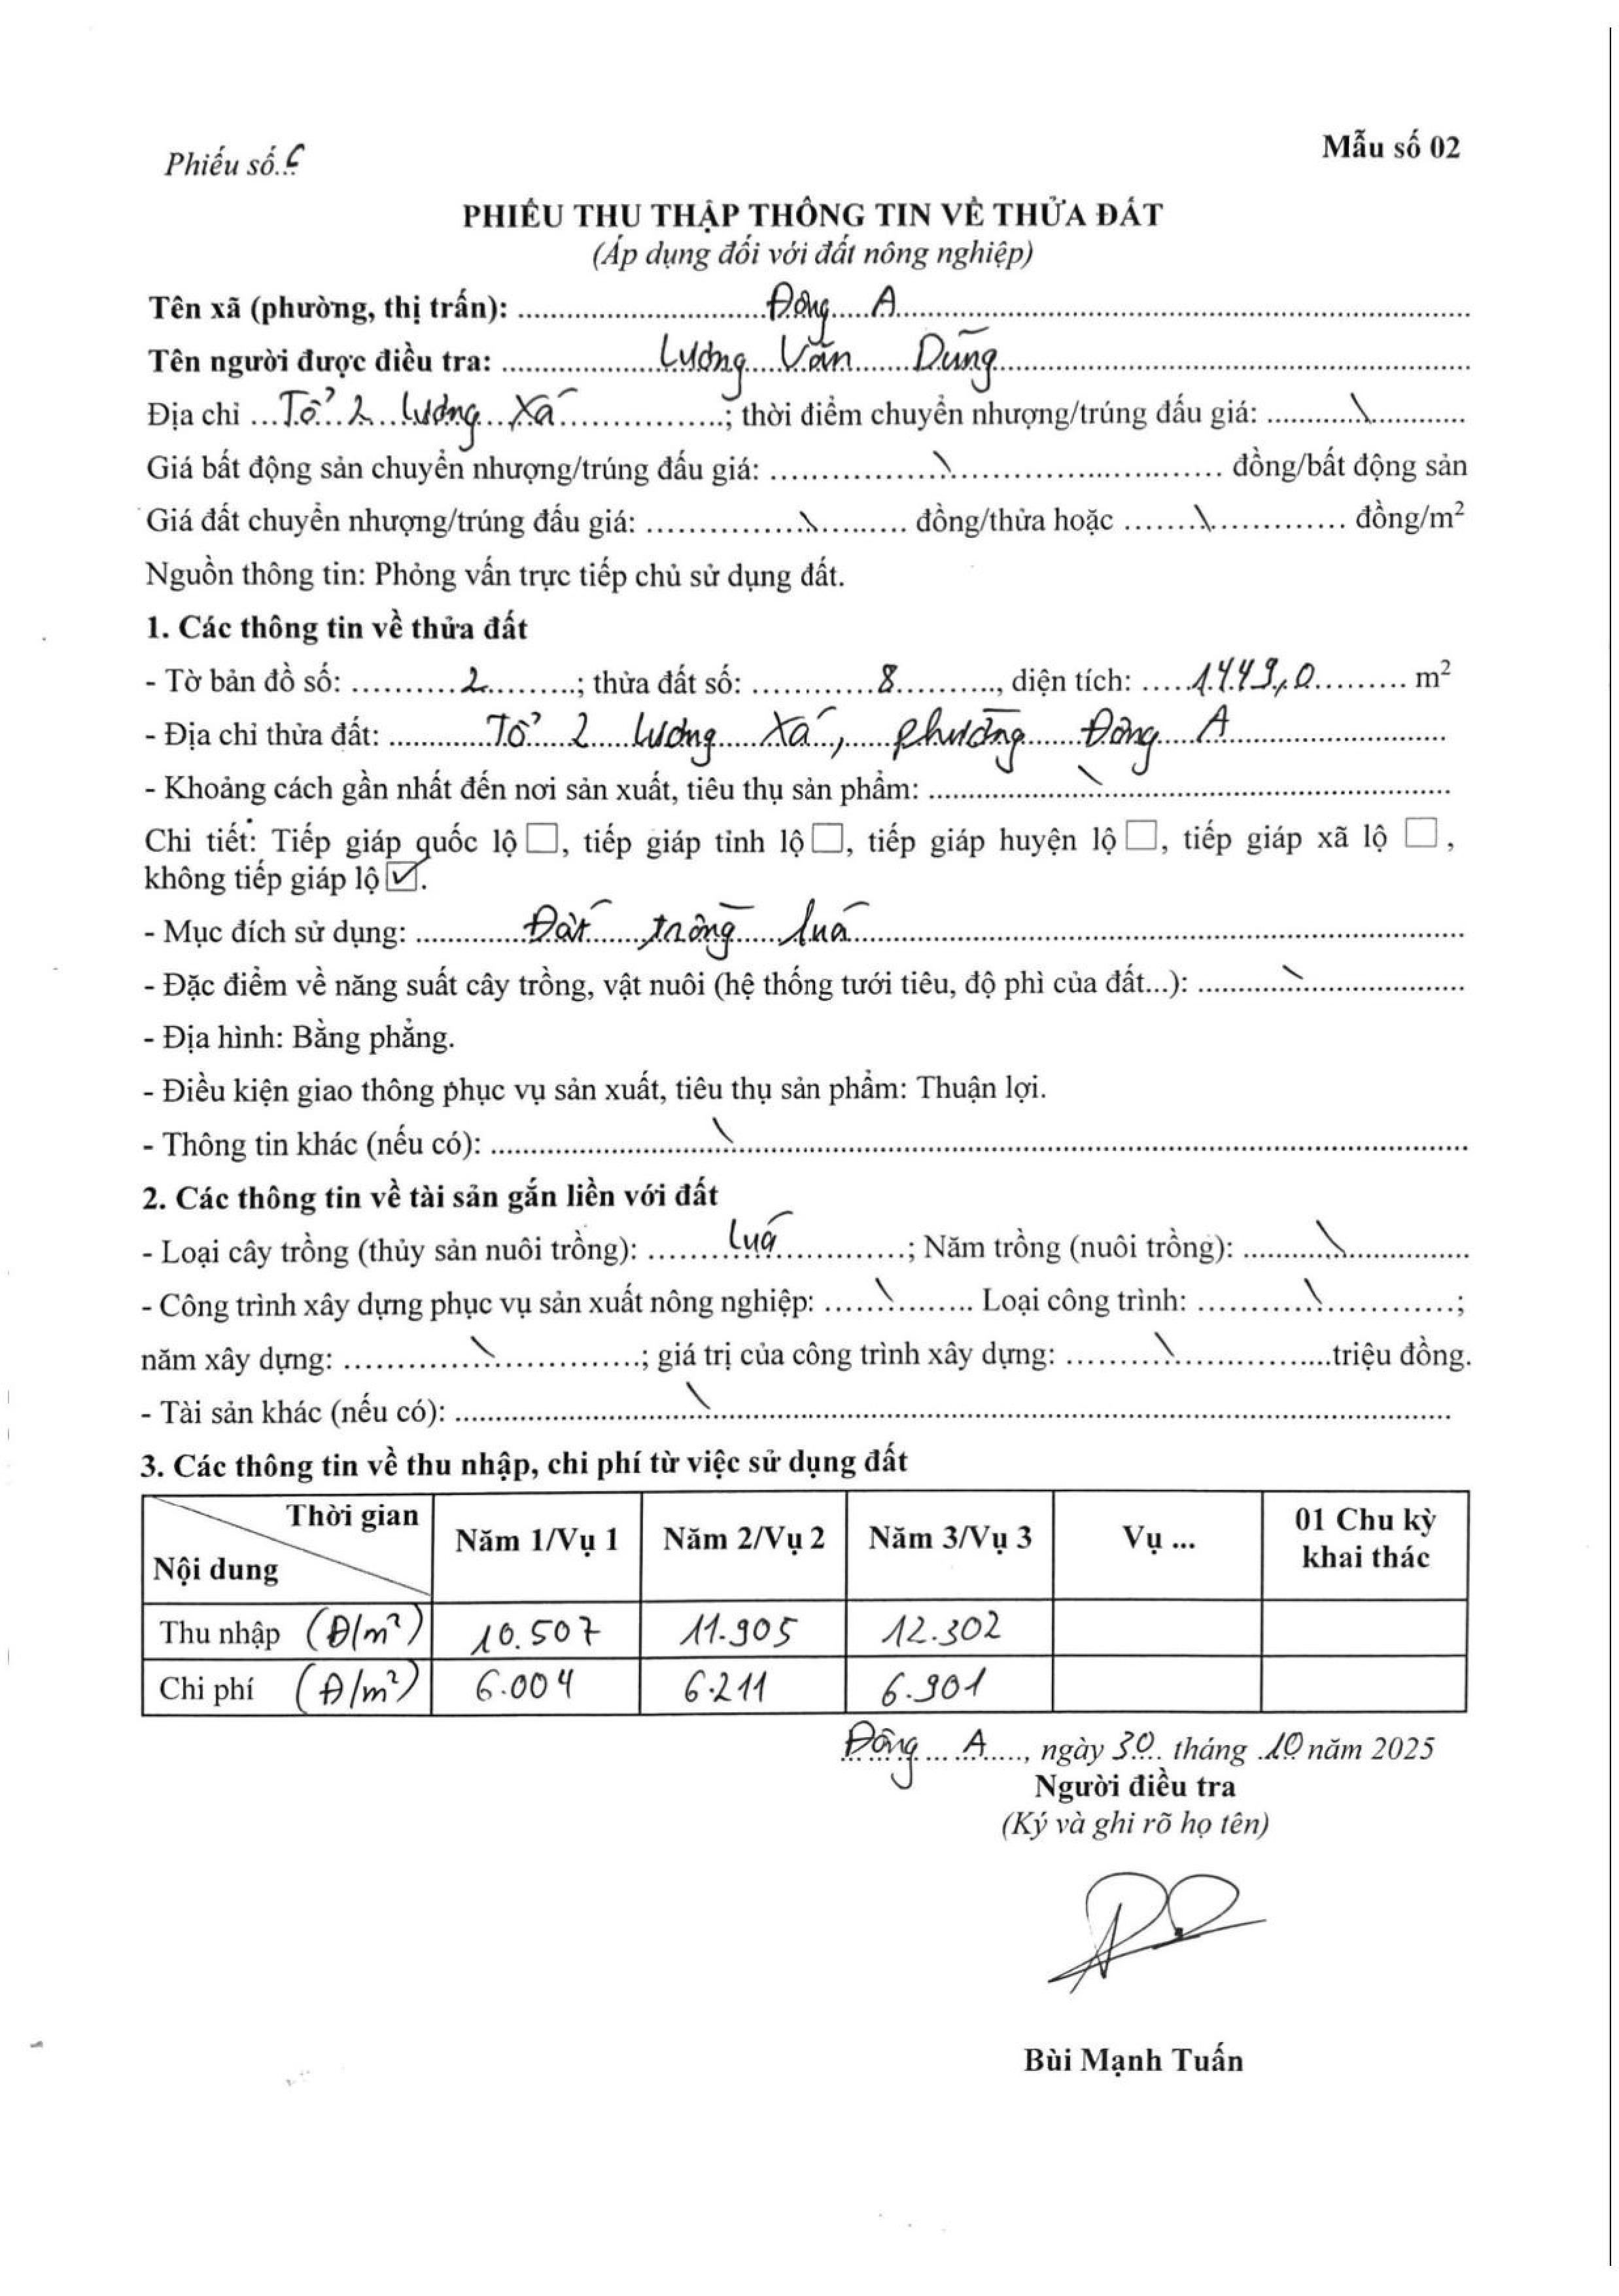 Phiếu số...
Mẫu số 02
PHIẾU THU THẬP THÔNG TIN VỀ THỬA ĐẤT
(Áp dụng đối với đất nông nghiệp)
Tên xã (phường, thị trấn): Đông A
Tên người được điều tra: Lương Văn Dũng
Địa chỉ Tổ 2 Lương Xá; thời điểm chuyển nhượng/trúng đấu giá: \
Giá bất động sản chuyển nhượng/trúng đấu giá: \ đồng/bất động sản
Giá đất chuyển nhượng/trúng đấu giá: \ đồng/thửa hoặc \ đồng/m²
Nguồn thông tin: Phỏng vấn trực tiếp chủ sử dụng đất.
1. Các thông tin về thửa đất
- Tờ bản đồ số: 2; thửa đất số: 8, diện tích: 1449,0 m²
- Địa chỉ thửa đất: Tổ 2 Lương Xá, phường Đông A
- Khoảng cách gần nhất đến nơi sản xuất, tiêu thụ sản phẩm: \
Chi tiết: Tiếp giáp quốc lộ ☐, tiếp giáp tỉnh lộ ☐, tiếp giáp huyện lộ ☐, tiếp giáp xã lộ ☐,
không tiếp giáp lộ ☑.
- Mục đích sử dụng: Đất trồng lúa
- Đặc điểm về năng suất cây trồng, vật nuôi (hệ thống tưới tiêu, độ phì của đất...): \
- Địa hình: Bằng phẳng.
- Điều kiện giao thông phục vụ sản xuất, tiêu thụ sản phẩm: Thuận lợi.
- Thông tin khác (nếu có): \
2. Các thông tin về tài sản gắn liền với đất
- Loại cây trồng (thủy sản nuôi trồng): Lúa; Năm trồng (nuôi trồng): \
- Công trình xây dựng phục vụ sản xuất nông nghiệp: \ Loại công trình: \;
năm xây dựng: \; giá trị của công trình xây dựng: \ triệu đồng.
- Tài sản khác (nếu có): \
3. Các thông tin về thu nhập, chi phí từ việc sử dụng đất
Thời gian
Nội dung Năm 1/Vụ 1 Năm 2/Vụ 2 Năm 3/Vụ 3 Vụ ... 01 Chu kỳ khai thác
Thu nhập (Đ/m²) 10.507 11.905 12.302
Chi phí (Đ/m²) 6.004 6.211 6.901
Đông A, ngày 30 tháng 10 năm 2025
Người điều tra
(Ký và ghi rõ họ tên)
Bùi Mạnh Tuấn